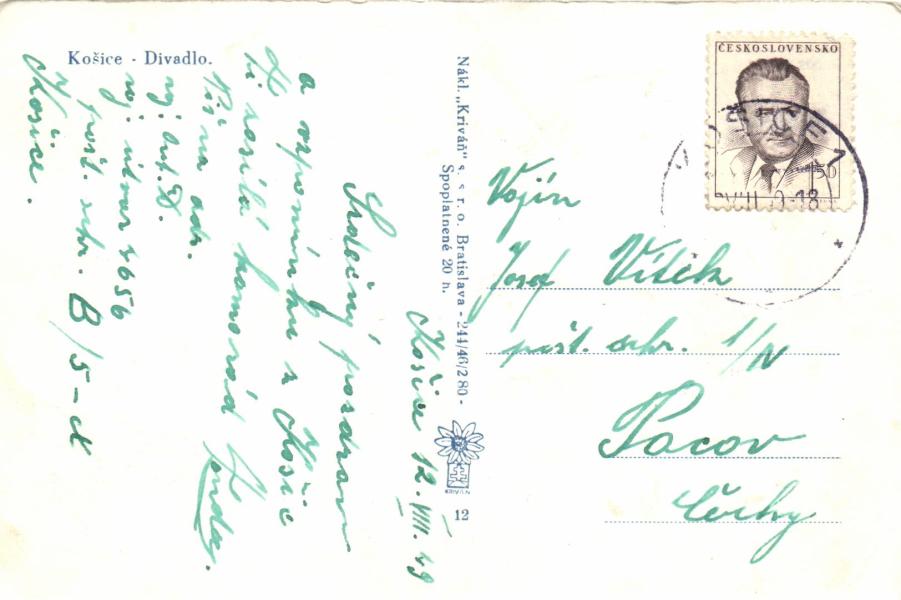 Košice - Divadlo.
Košice 12. VIII. 49
Srdečný pozdrav
a vzpomínku z Košic
Ti zasílá kamarád
Piš na adr.
voj. útvar 3656
pošt. schr. B/5-d
Košice.
Nákl. „Kriváň" s. s r. o. Bratislava - 244/46/2 80 -
Spoplatnené 20 h.
KRIVÁŇ
12
ČESKOSLOVENSKO
1.50
Vojín
Josef Vítek
pošt. schr. 1/N
Pacov
Čechy